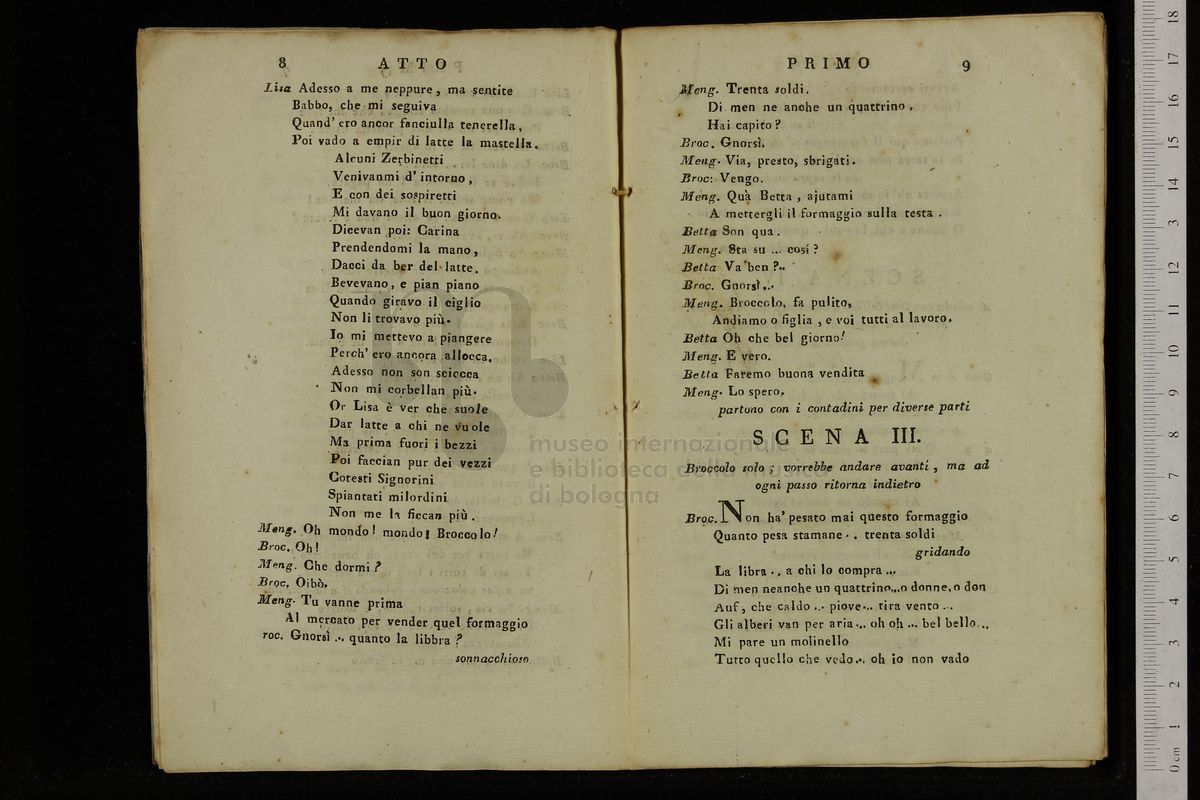 8 ATTO
Lisa Adesso a me neppure, ma sentite
Babbo, che mi seguiva
Quand' ero ancor fanciulla tenerella,
Poi vado a empir di latte la mastella.
Alcuni Zerbinetti
Venivanmi d' intorno,
E con dei sospiretti
Mi davano il buon giorno.
Dicevan poi: Carina
Prendendomi la mano,
Dacci da ber del latte.
Bevevano, e pian piano
Quando giravo il ciglio
Non li trovavo più.
Io mi mettevo a piangere
Perch' ero ancora allocca.
Adesso non son sciocca
Non mi corbellan più.
Or Lisa è ver che suole
Dar latte a chi ne vuole
Ma prima fuori i bezzi
Poi faccian pur dei vezzi
Cotesti Signorini
Spiantati milordini
Non me la ficcan più.
Meng. Oh mondo! mondo! Broccolo!
Broc. Oh!
Meng. Che dormi?
Broc. Oibò.
Meng. Tu vanne prima
Al mercato per vender quel formaggio
roc. Gnorsì ... quanto la libbra?
sonnacchioso
PRIMO 9
Meng. Trenta soldi.
Di men ne anche un quattrino.
Hai capito?
Broc. Gnorsì.
Meng. Via, presto, sbrigati.
Broc: Vengo.
Meng. Quà Betta, ajutami
A mettergli il formaggio sulla testa.
Betta Son qua.
Meng. Sta su ... così?
Betta Va ben?..
Broc. Gnorsì...
Meng. Broccolo, fa pulito,
Andiamo o figlia, e voi tutti al lavoro.
Betta Oh che bel giorno!
Meng. E vero.
Betta Faremo buona vendita
Meng. Lo spero.
partono con i contadini per diverse parti
SCENA III.
Broccolo solo; vorrebbe andare avanti, ma ad
ogni passo ritorna indietro
Broc. Non ha' pesato mai questo formaggio
Quanto pesa stamane .. trenta soldi
gridando
La libra .. a chi lo compra ...
Di men neanche un quattrino...o donne, o don
Auf, che caldo ... piove... tira vento ...
Gli alberi van per aria... oh oh ... bel bello...
Mi pare un molinello
Tutto quello che vedo... oh io non vado
museo internazionale
e biblioteca della musica
di bologna
0 cm 1 2 3 4 5 6 7 8 9 10 11 12 13 14 15 16 17 18